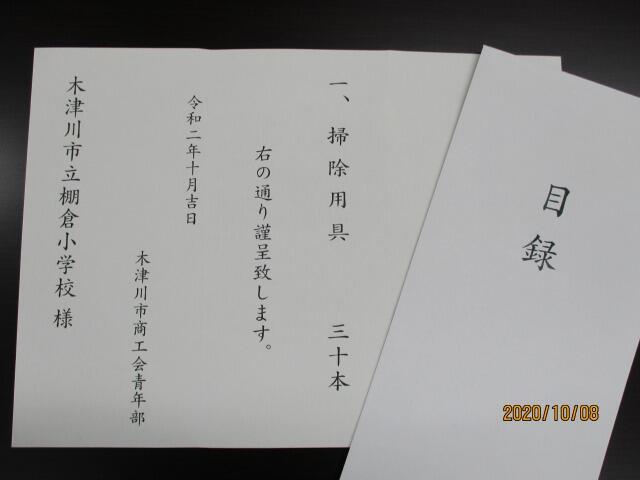 目録
一、掃除用具　三十本
右の通り謹呈致します。
令和二年十月吉日
木津川市商工会青年部
木津川市立棚倉小学校 様
2020/10/08